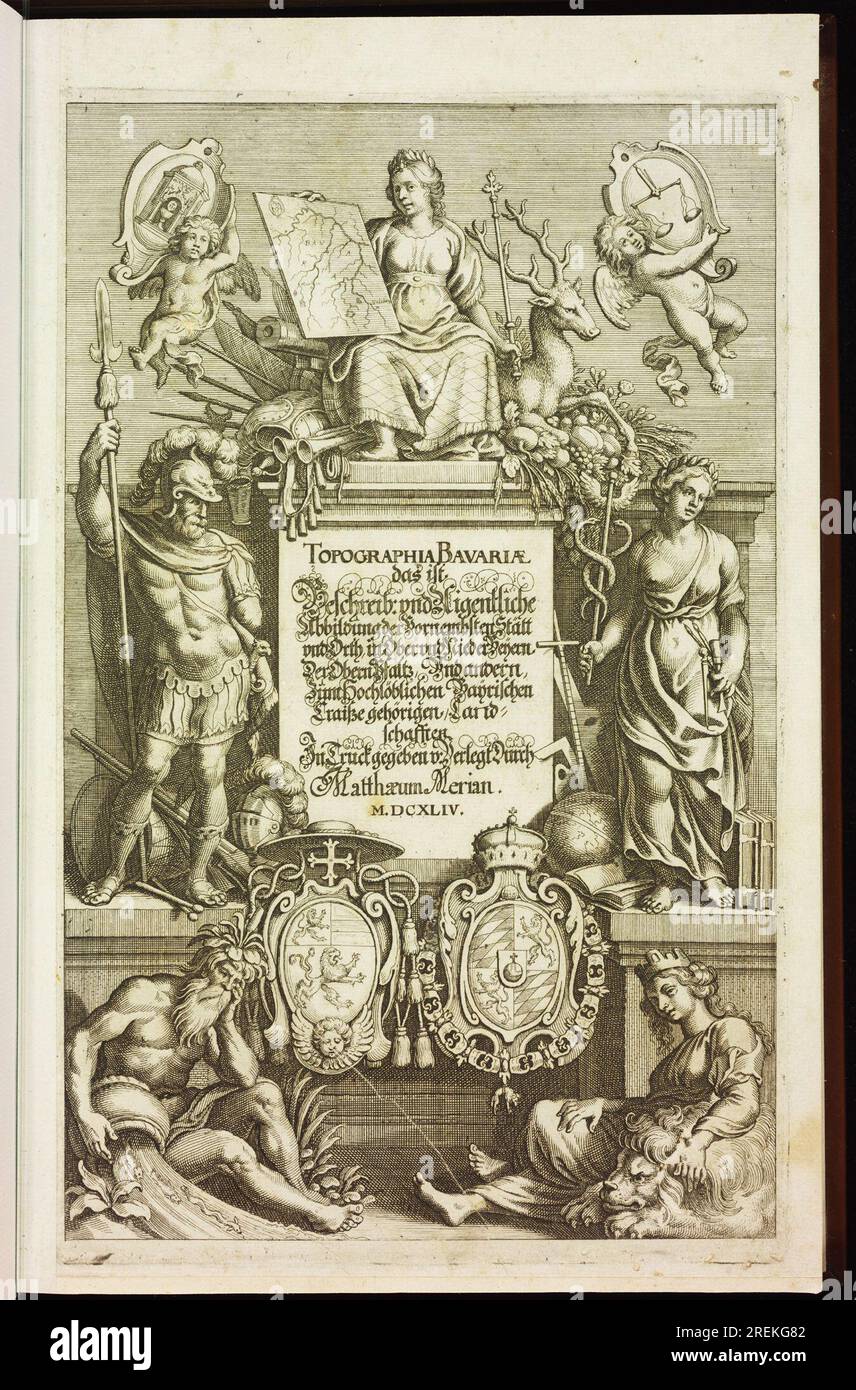 BAVA
TOPOGRAPHIA BAVARIÆ
das ist
Beschreib: vnd Aigentliche
Abbildung der Vornembsten Stätt
vnd Orth in Obern vnd Nieder Beyern
Der Obern Pfaltz, Vnd andern,
Zum Hochlöblichen Bayrischen
Craiße gehörigen, Land-
schafften
In Truck gegeben v: Verlegt Durch
Matthæum Merian.
M.DCXLIV.
alamy
Image ID: 2REKG82
www.alamy.com